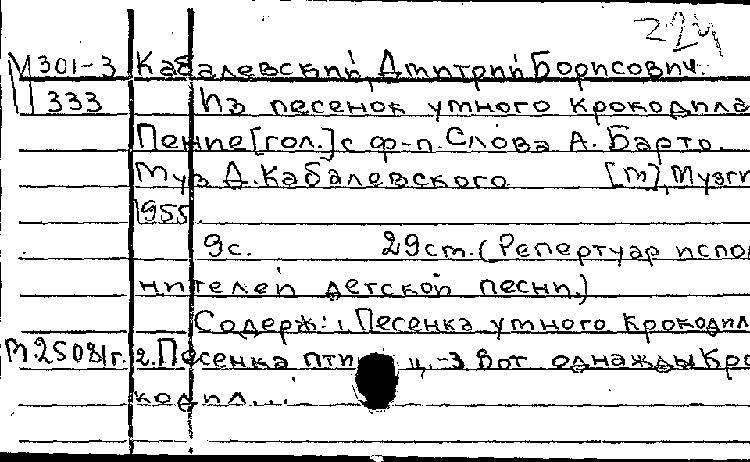 224
М301-3 Кабалевский, Дмитрий Борисович.
333 Из песенок умного крокодила
Пение [гол.] с ф-п. Слова А. Барто.
Муз Д. Кабалевского [М], Музги
1955.
9с. 29см. (Репертуар испол
нителей детской песни.)
Содерж: 1, Песенка умного крокодил
М25081г. 2. Песенка пти ц, -3. Вот однажды кро
кодил...